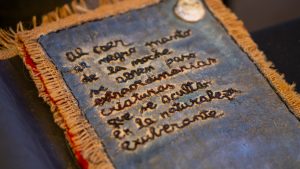 Al caer
el negro manto
de la noche
se abren paso
extraordinarias
criaturas
que se ocultan
en la naturaleza
exuberante.